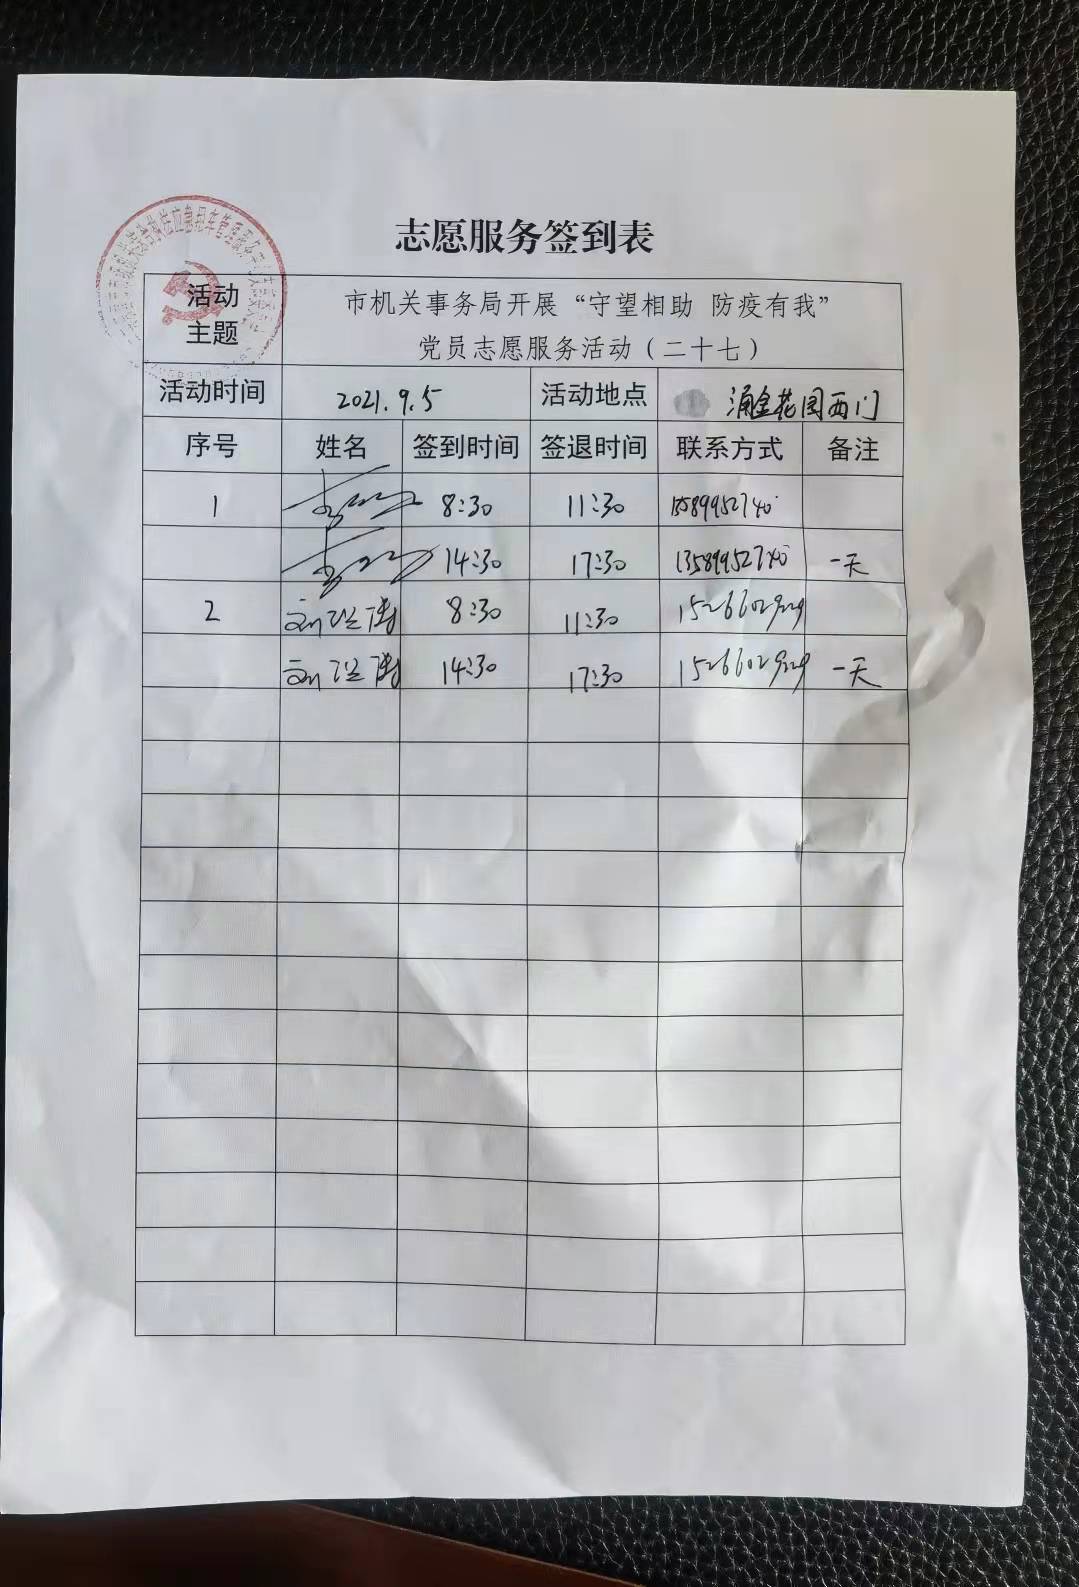 志愿服务签到表
活动
主题
市机关事务局开展“守望相助 防疫有我”
党员志愿服务活动（二十七）
活动时间 2021.9.5 活动地点 涌金花园西门
序号 姓名 签到时间 签退时间 联系方式 备注
1 8:30 11:30
14:30 17:30 13589952740 一天
2 8:30 11:30
14:30 17:30 一天